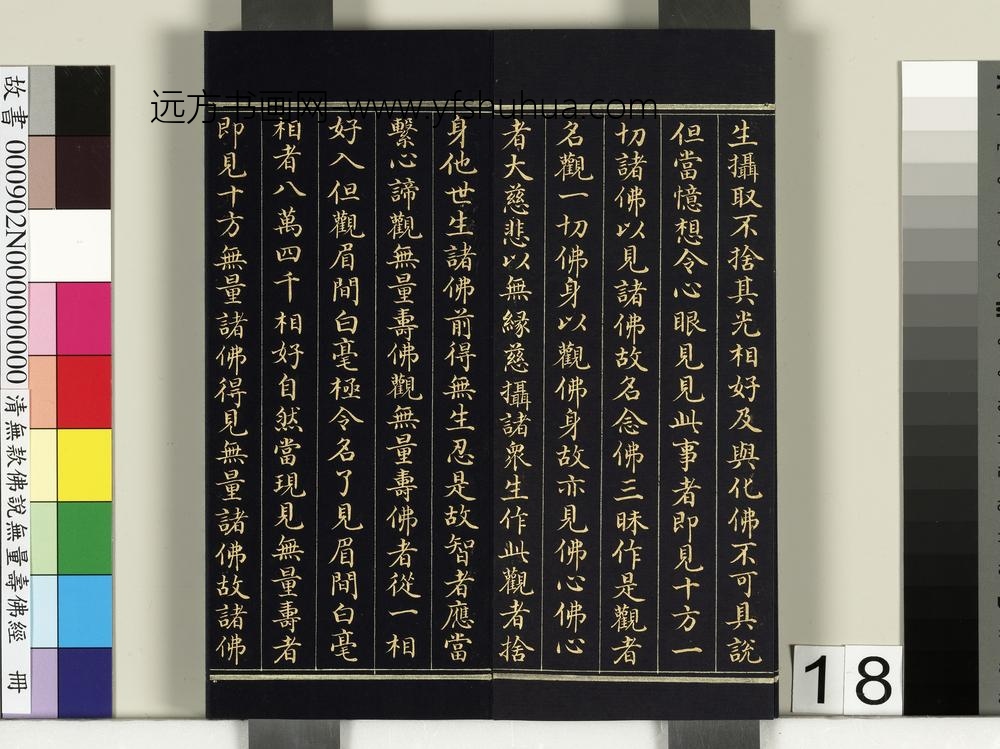 远方书画网 www.yfshuhua.com
生攝取不捨其光相好及與化佛不可具說
但當憶想令心眼見見此事者即見十方一
切諸佛以見諸佛故名念佛三昧作是觀者
名觀一切佛身以觀佛身故亦見佛心佛心
者大慈悲以無緣慈攝諸衆生作此觀者捨
身他世生諸佛前得無生忍是故智者應當
繫心諦觀無量壽佛觀無量壽佛者從一相
好入但觀眉間白毫極令名了見眉間白毫
相者八萬四千相好自然當現見無量壽者
即見十方無量諸佛得見無量諸佛故諸佛
故書 000902N000000000 清無款佛說無量壽佛經 冊
18